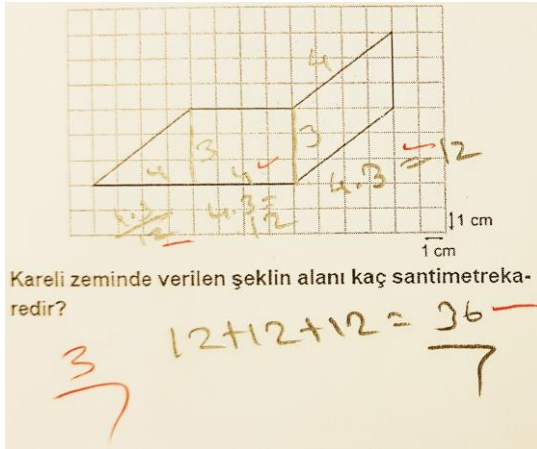 4
3
3
4
4
4.3
12
4.3=
12
4.3 = 12
1 cm
1 cm
Kareli zeminde verilen şeklin alanı kaç santimetreka-
redir?
12+12+12= 36
3